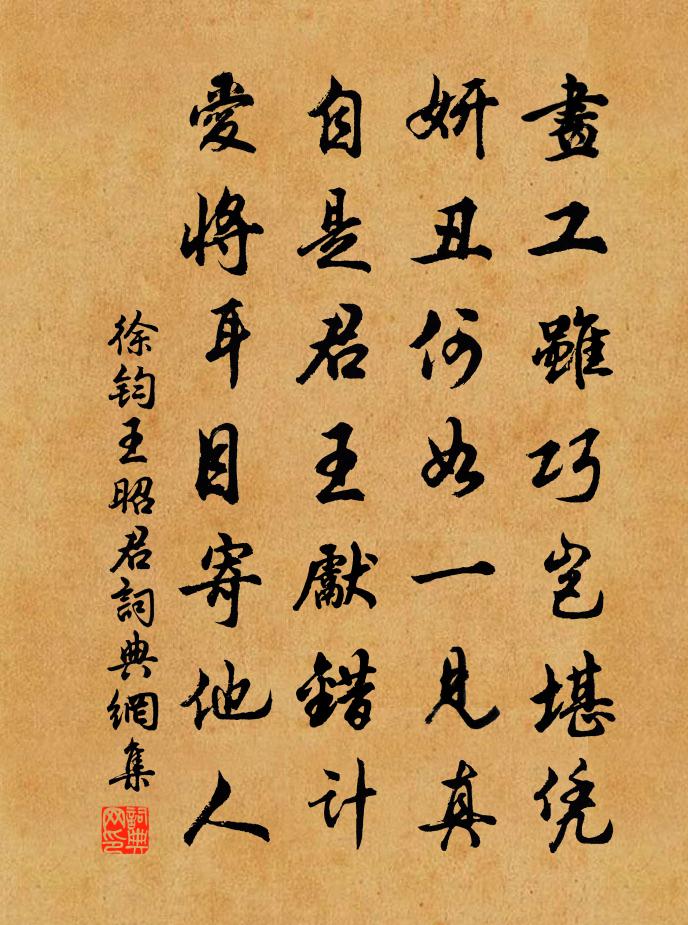 畫工雖巧豈堪凭
妍丑何如一見真
自是君王獻錯計
愛將耳目寄他人
徐钧王昭君詞典網集
詞典网印